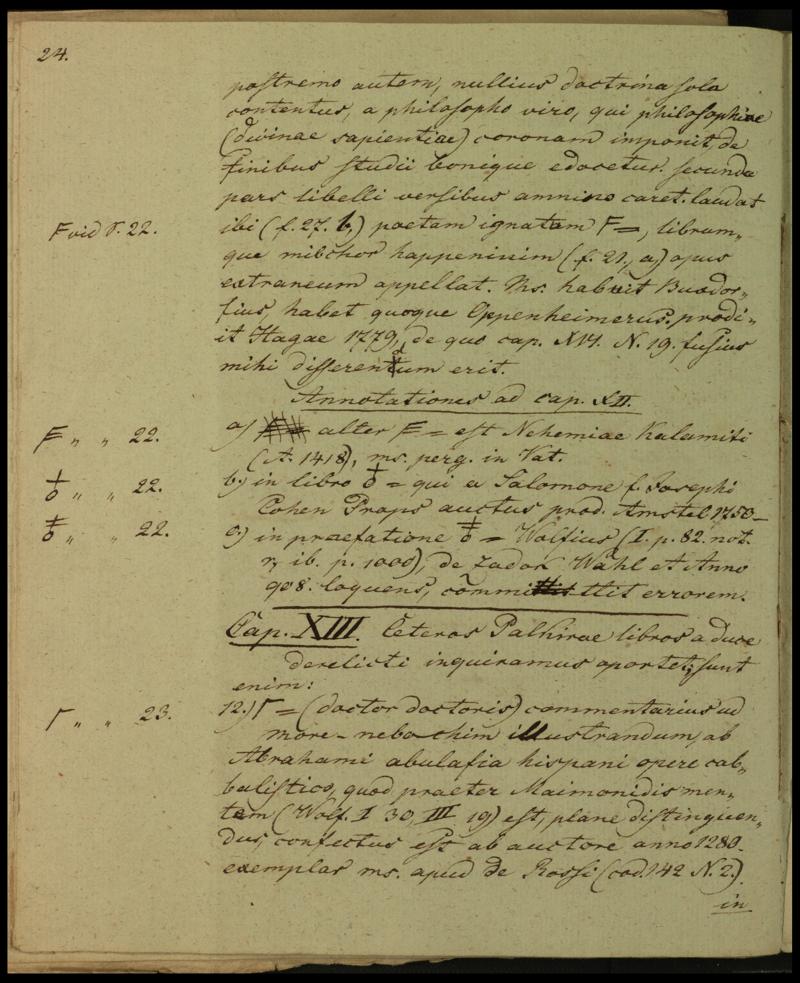 24.
postremo autem, nullius doctrina sola
contentus, a philosopho viro, qui philosophiae
(divinae sapientiae) coronam imponit, de
finibus studii bonique edocetur. secunda
pars libelli versibus amnino caret. laudat
F vid P. 22.
ibi (f. 27. b,) poetam ignatam F=, librum„
que mibchor happeninim (f. 21., a,) opus
extraneum appellat. Ms. habuit Buxdor„
fius, habet quoque Oppenheimerus. prodi„
it Hagae 1779, de quo cap. XVI. N. 19. fusius
mihi differendum erit.
Annotationes ad cap. XII.
F „ „ 22.
a) alter F = est Nehemiae Kalamiti
(A. 1418), ms. perg. in Vat.
„ „ 22.
b.) in libro = qui a Salomone f. Josephi
Cohen Props auctus prod. Amstel 1750—
„ „ 22.
c.) in praefatione = Wolfius (I. p. 82. not.
r, ib. p. 1000), de Zadok Wahl et Anno
908. loquens, committit errorem.
Cap. XIII. Ceteros Palkirae libros a duce
derelicti inquiramus oportet; sunt
enim:
Γ „ „ 23.
12.) Γ = (doctor doctoris) commentarius ad
more-nebochim illustrandum, ab
Abrahami abulafia hispani opere cab„
balistico, quod praeter Maimonidis men„
tem (Wolf. I 30, III 19) est, plane distinguen„
dus, confectus est ab auctore anno 1280.
exemplar ms. apud de Rossi (cod. 142 N. 2.)
in